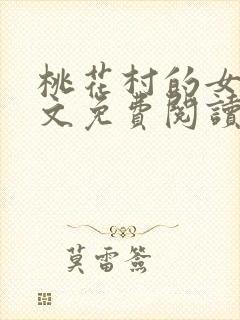 桃花村的女
文免費閱讀
莫雷簽